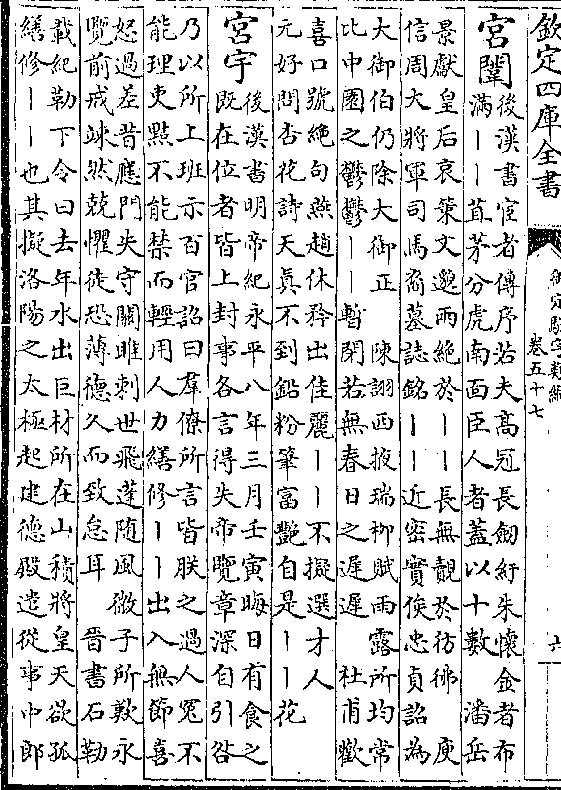 欽定四庫全書
御定駢字類編
卷五十七
六
宮闈
後漢書宦者傳序若夫高冠長劒紆朱懷金者布
滿――苴茅分虎南面臣人者蓋以十數 潘岳
景獻皇后哀策文邈雨絶於――長無覿於彷彿 庾
信周大將軍司馬裔墓誌銘――近密實俟忠貞詔為
大御伯仍除大御正 陳詡西掖瑞柳賦雨露所均常
比中園之鬱鬱――暫閉若無春日之遲遲 杜甫歡
喜口號絶句燕趙休矜出佳麗――不擬選才人
元好問杏花詩天真不到鉛粉筆富艷自是――花
宮宇
後漢書明帝紀永平八年三月壬寅晦日有食之
既在位者皆上封事各言得失帝覽章深自引咎
乃以所上班示百官詔曰羣僚所言皆朕之過人冤不
能理吏黠不能禁而輕用人力繕修――出入無節喜
怒過差昔應門失守關雎刺世飛蓬隨風微子所歎永
覽前戒竦然兢懼徒恐薄德久而致怠耳 晉書石勒
載紀勒下令曰去年水出巨材所在山積將皇天欲孤
繕修――也其擬洛陽之太極起建德殿遣從事中郎